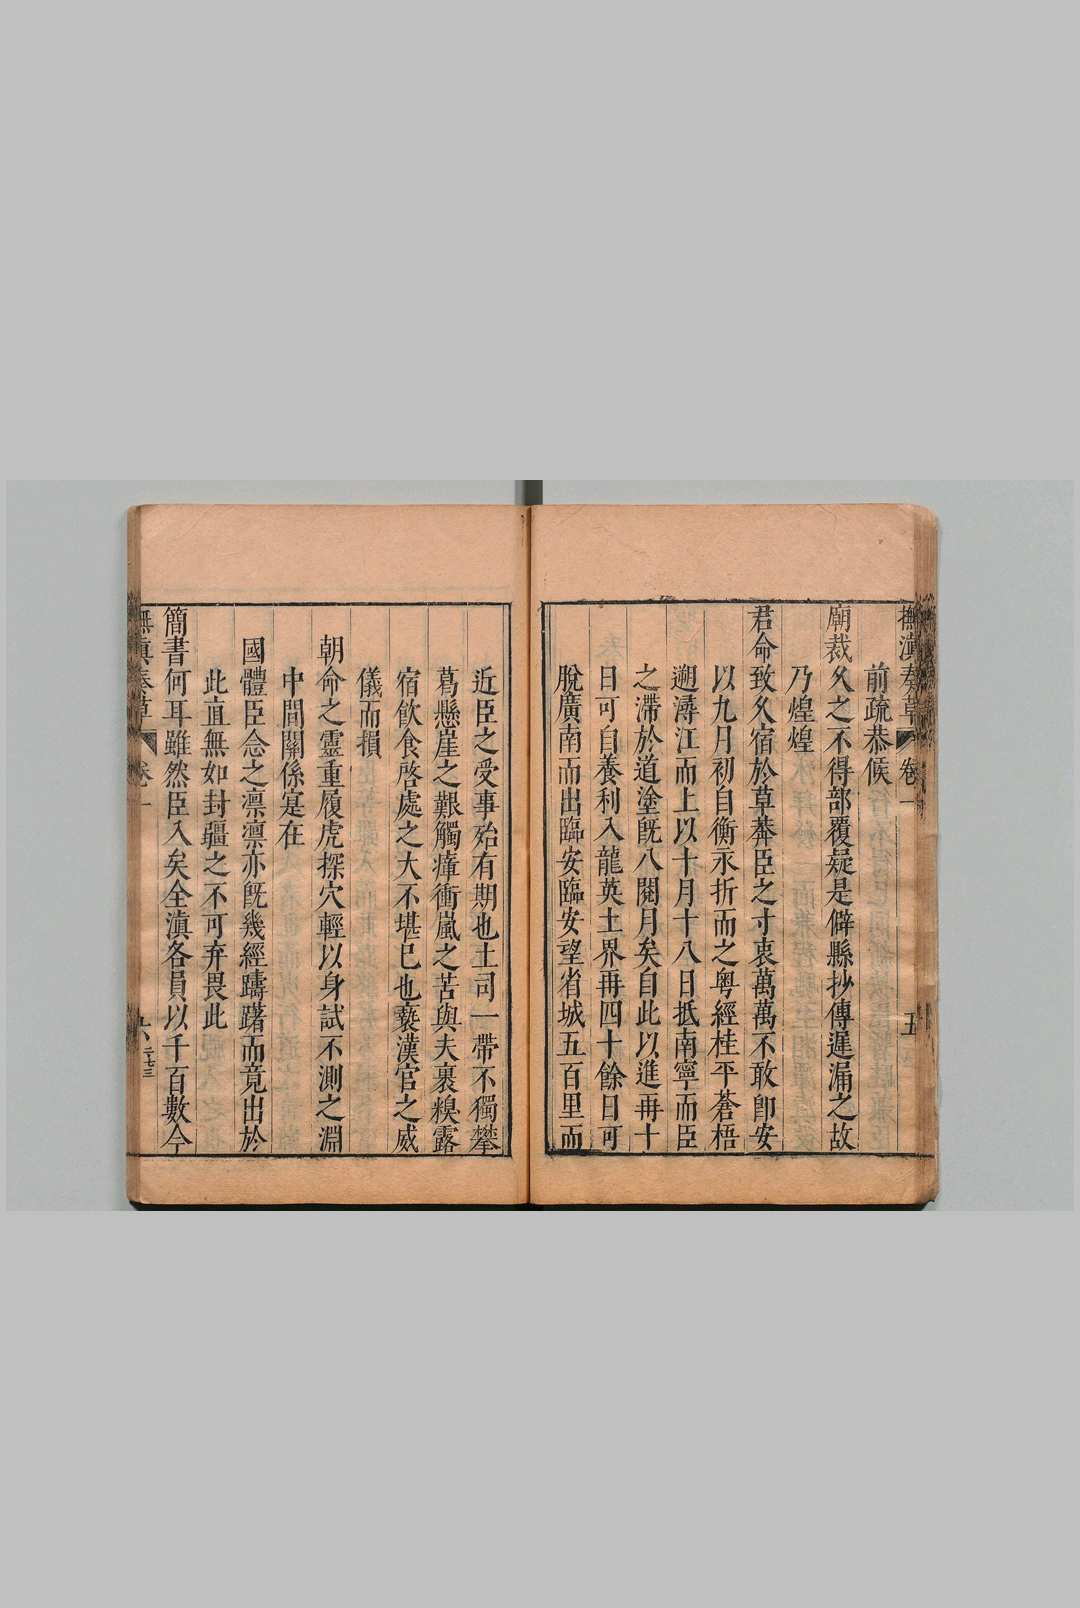 撫滇奏草 卷一 五
前疏恭候
廟裁久之不得部覆疑是僻縣抄傳遲漏之故
乃煌煌
君命致久宿於草莽臣之寸衷萬萬不敢卽安
以九月初自衡永折而之粤經桂平蒼梧
遡潯江而上以十月十八日抵南寧而臣
之滯於道塗旣八閱月矣自此以進再十
日可自養利入龍英土界再四十餘日可
脫廣南而出臨安臨安望省城五百里而
近臣之受事殆有期也土司一帶不獨攀
葛懸崖之艱觸瘴衝嵐之苦與夫裹糗露
宿飮食啓處之大不堪巳也褻漢官之威
儀而損
朝命之靈重履虎探穴輕以身試不測之淵
中間關係寔在
國體臣念之凛凛亦旣幾經躊躇而竟出於
此直無如封疆之不可弃畏此
簡書何耳雖然臣入矣全滇各員以千百數今
撫滇奏草 卷一 六